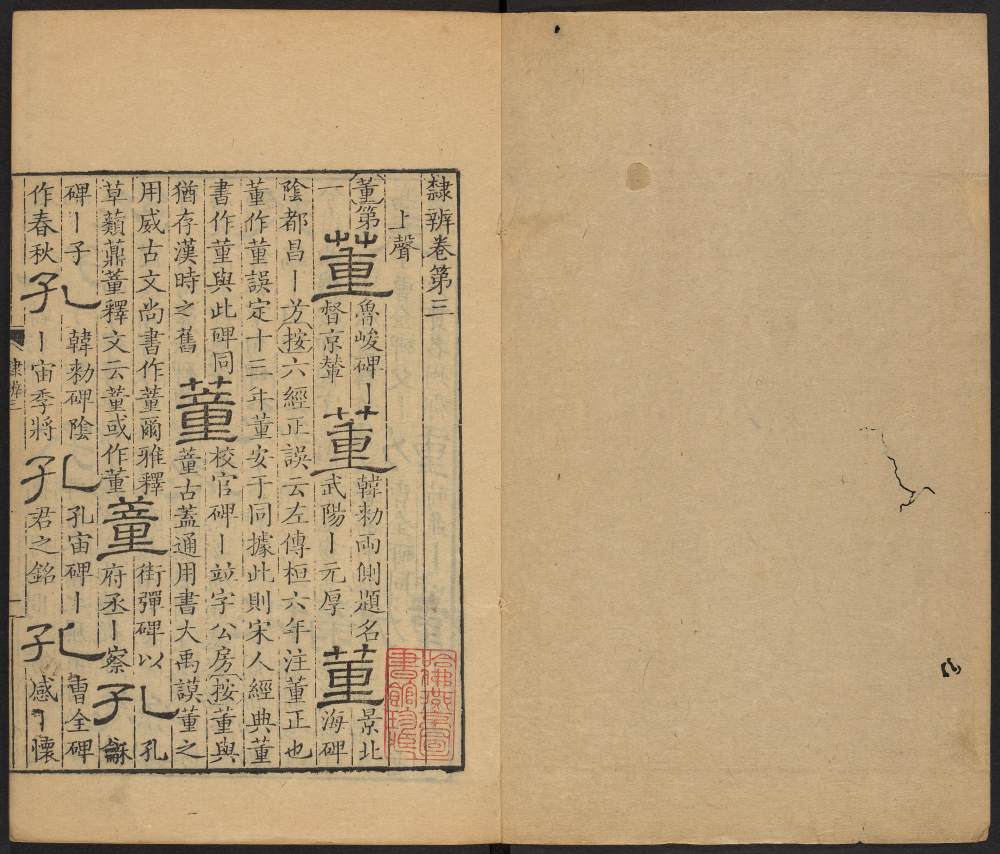 隸辨卷第三
上聲
董第 董 魯峻碑丨 董 韓勑兩側題名 董 景北
一 督京輦 武陽丨元厚 海碑
陰都昌丨芳按六經正誤云左傳桓六年注董正也
董作董誤定十三年董安于同據此則宋人經典董
書作董與此碑同 蕫 校官碑丨竝字公房按董與
猶存漢時之舊 董古蓋通用書大禹謨董之
用威古文尚書作董爾雅釋 蕫 街彈碑以 孔 孔
草虈薡董釋文云董或作董 府丞丨察 龢
碑丨子 孔 韓勑碑陰 孔 孔宙碑丨 孔 曹全碑
作春秋 丨宙季將 君之銘 感丨懷
隸辨三
哈佛燕京圖
書館珍藏